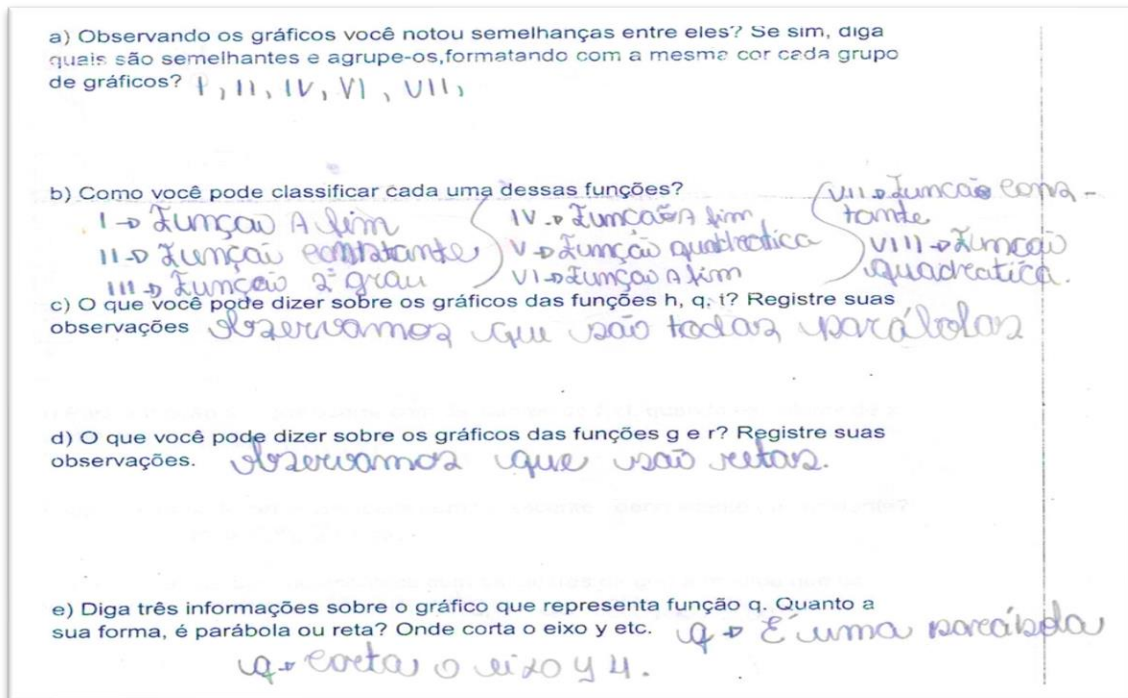 a) Observando os gráficos você notou semelhanças entre eles? Se sim, diga
quais são semelhantes e agrupe-os,formatando com a mesma cor cada grupo
de gráficos? I, II, IV, VI, VII,
b) Como você pode classificar cada uma dessas funções?
I → Função A fim
II → Função constante
III → Função 2º grau
IV → Função A fim
V → Função quadrática
VI → Função A fim
VII → Função cons -
tante
VIII → Função
quadratica.
c) O que você pode dizer sobre os gráficos das funções h, q, t? Registre suas
observações Observamos que são todas parábolas
d) O que você pode dizer sobre os gráficos das funções g e r? Registre suas
observações. Observamos que são retas.
e) Diga três informações sobre o gráfico que representa função q. Quanto a
sua forma, é parábola ou reta? Onde corta o eixo y etc. q → É uma parábola
q → corta o eixo y 4.